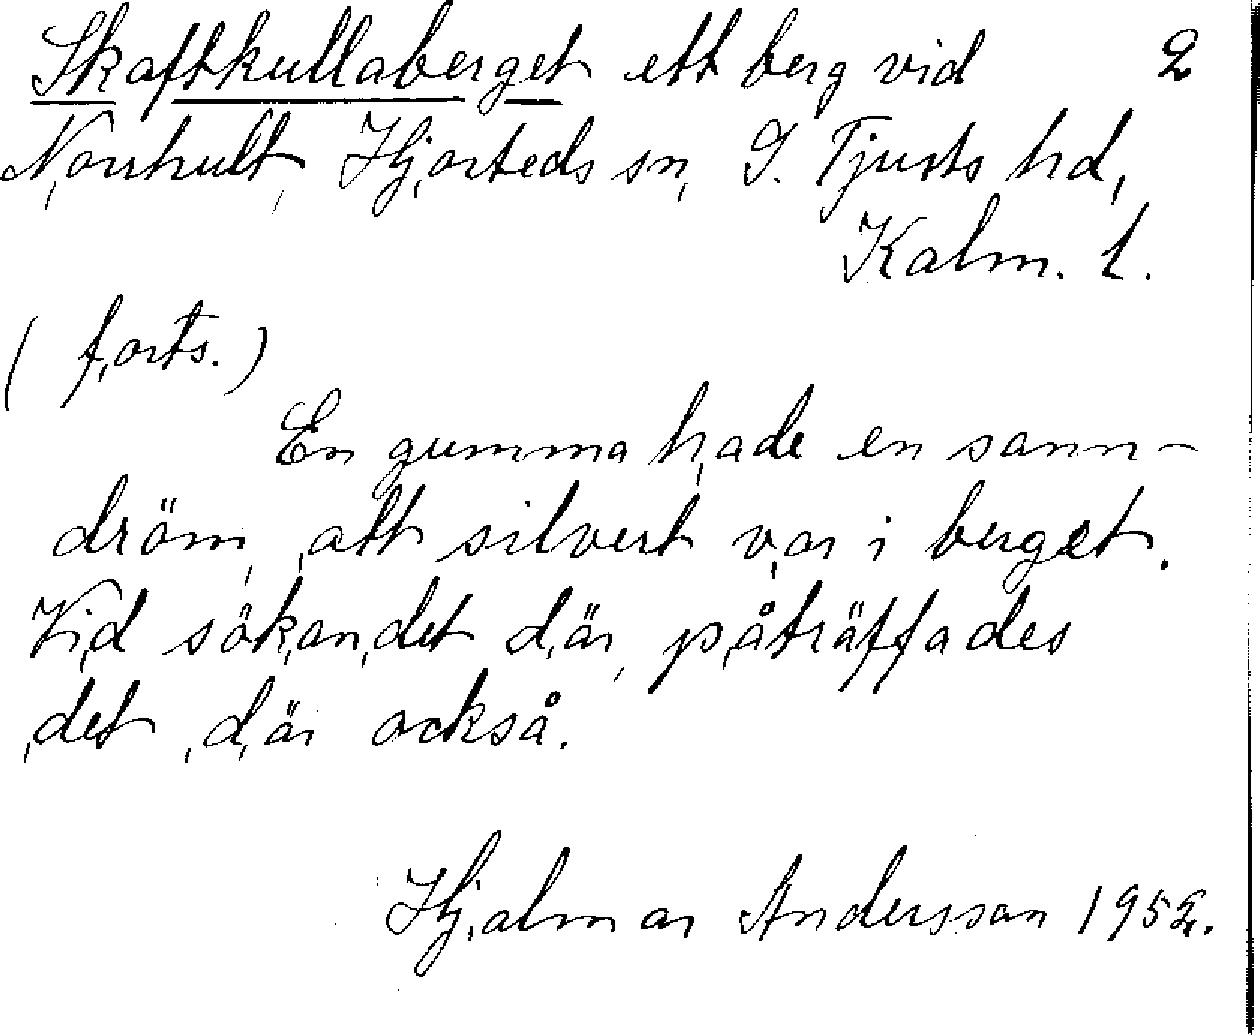 Skaftkullaberget ett berg vid 2
Norrhult, Hjorteds sn, S. Tjusts hd,
Kalm. l.
(forts.)
En gumma hade en sann-
dröm, att silvert var i berget.
Vid sökandet där, påträffades
det där också.
Hjalmar Andersson 1952.